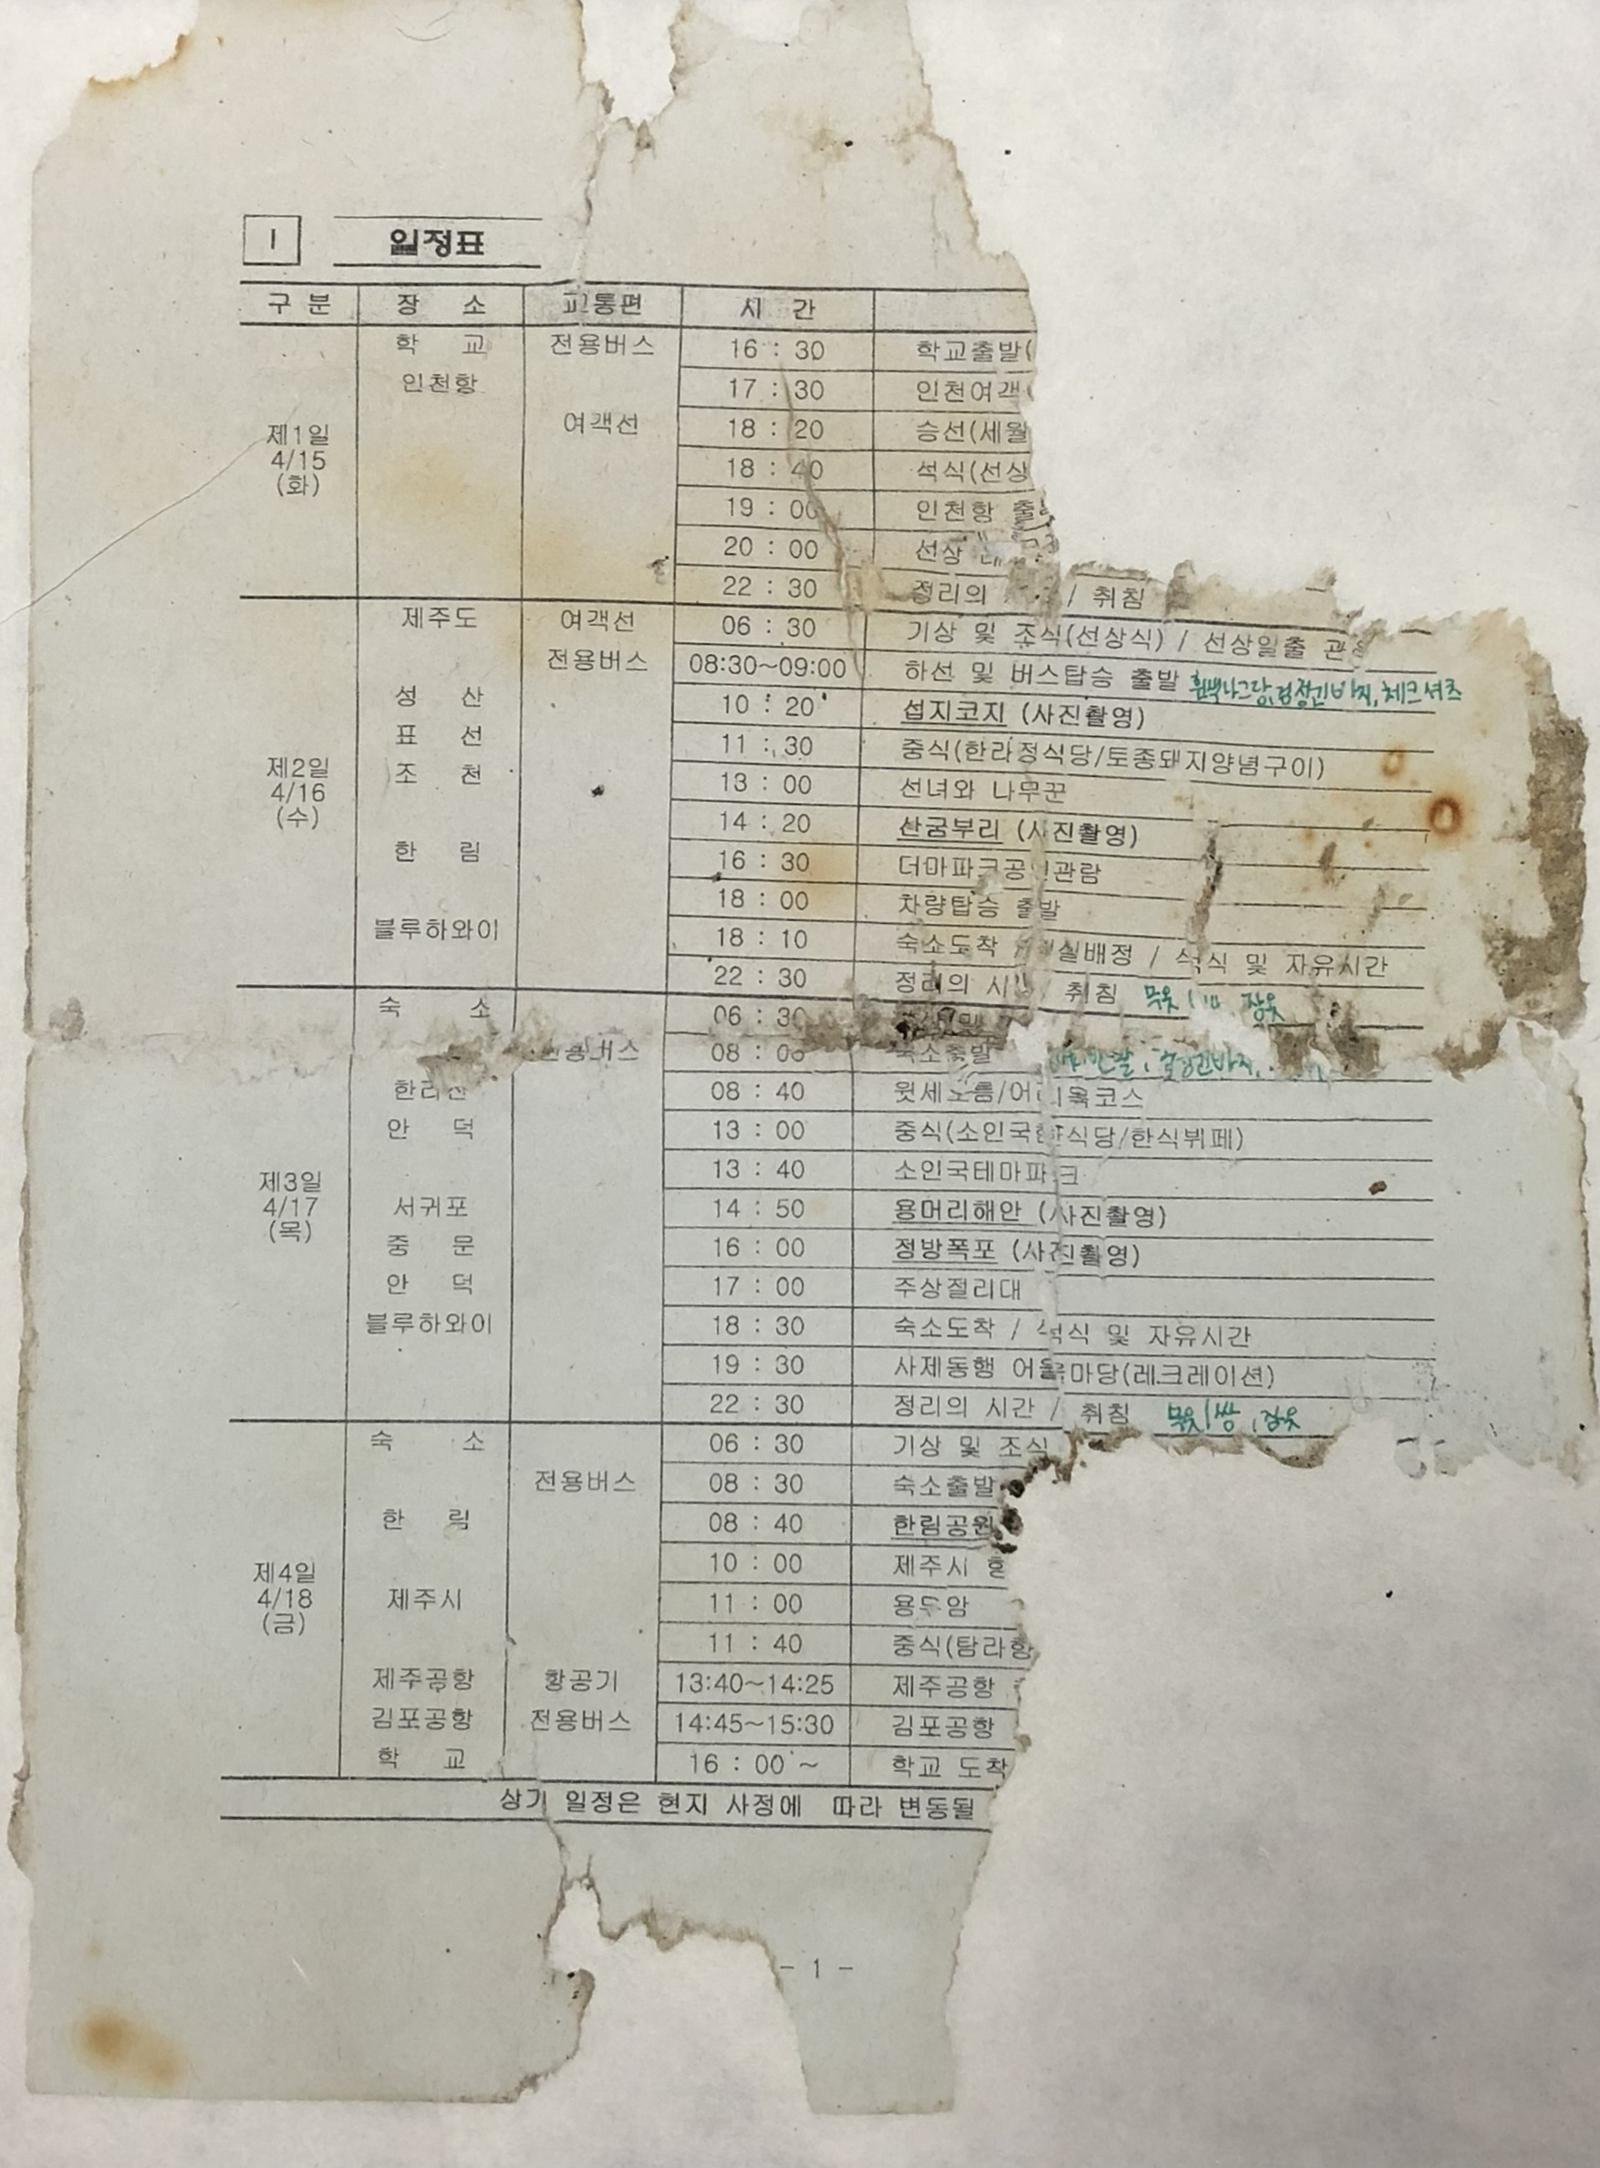 I 일정표
구 분 장 소 교통편 시 간
학 교 전용버스 16 : 30 학교출발(
인천항 17 : 30 인천여객
여객선 18 : 20 승선(세월
제1일 4/15 (화)
18 : 40 석식(선상
19 : 00 인천항
20 : 00 선상
22 : 30 정리의 / 취침
제주도 여객선 06 : 30 기상 및 조식(선상식) / 선상일출
전용버스 08:30~09:00 하선 및 버스탑승 출발 체크셔츠
성 산 10 : 20 섭지코지 (사진촬영)
표 선 11 : 30 중식(한라정식당/토종돼지양념구이)
제2일 4/16 (수)
조 천 13 : 00 선녀와 나무꾼
14 : 20 산굼부리 (사진촬영)
한 림 16 : 30 더마파크공연관람
18 : 00 차량탑승 출발
블루하와이 18 : 10 숙소도착 / 석식 및 자유시간
22 : 30 정리의 시간 / 취침 잠옷
숙 소 06 : 30
전용버스 08 : 00 숙소출발
한라산 08 : 40 윗세오름/어리목코스
안 덕 13 : 00 중식(소인국 식당/한식뷔페)
13 : 40 소인국테마파크
제3일 4/17 (목)
서귀포 14 : 50 용머리해안 (사진촬영)
중 문 16 : 00 정방폭포 (사진촬영)
안 덕 17 : 00 주상절리대
블루하와이 18 : 30 숙소도착 / 석식 및 자유시간
19 : 30 사제동행 어울마당(레크레이션)
22 : 30 정리의 시간 / 취침 잠옷
숙 소 06 : 30 기상 및 조식
전용버스 08 : 30 숙소출발
한 림 08 : 40 한림공원
10 : 00 제주시
제4일 4/18 (금)
제주시 11 : 00 용두암
11 : 40 중식(탐라
제주공항 항공기 13:40~14:25 제주공항
김포공항 전용버스 14:45~15:30 김포공항
학 교 16 : 00 ~ 학교 도착
상기 일정은 현지 사정에 따라 변동될
- 1 -